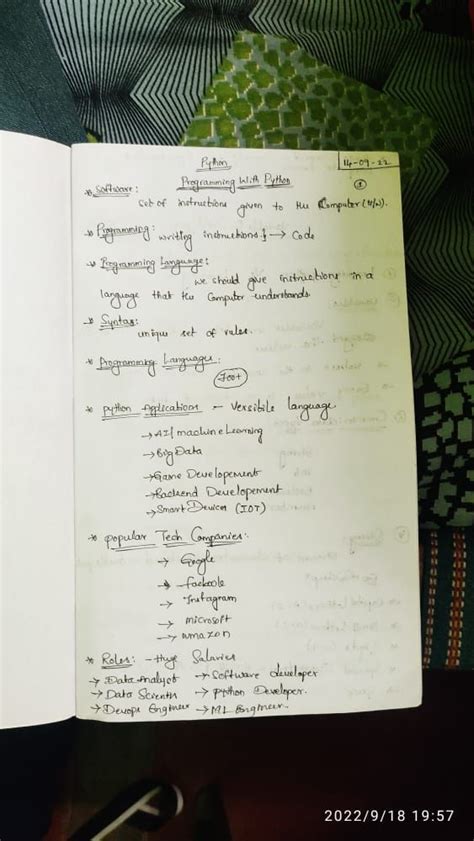 Python
14-09-22
Programming With Python
1
* Software:
Set of instructions given to the Computer (H/W).
* Programming: writing instructions → Code
* Programming Language:
we should give instructions in a
language that the Computer understands
* Syntax:
unique set of rules.
* Programming Language:
700+
* Python Applications - Versibile language.
→ AI/machine Learning
→ Big Data
→ Game Developement
→ Backend Developement
→ Smart Devices (IOT)
* popular Tech Companies:
→ Google
→ facebook
→ Instagram
→ microsoft
→ amazon
* Roles: - Huge Salaries
→ Data Analyst → Software developer
→ Data Scientis → Python Developer.
→ Devops Engineer → ML Engineer.
2022/9/18 19:57